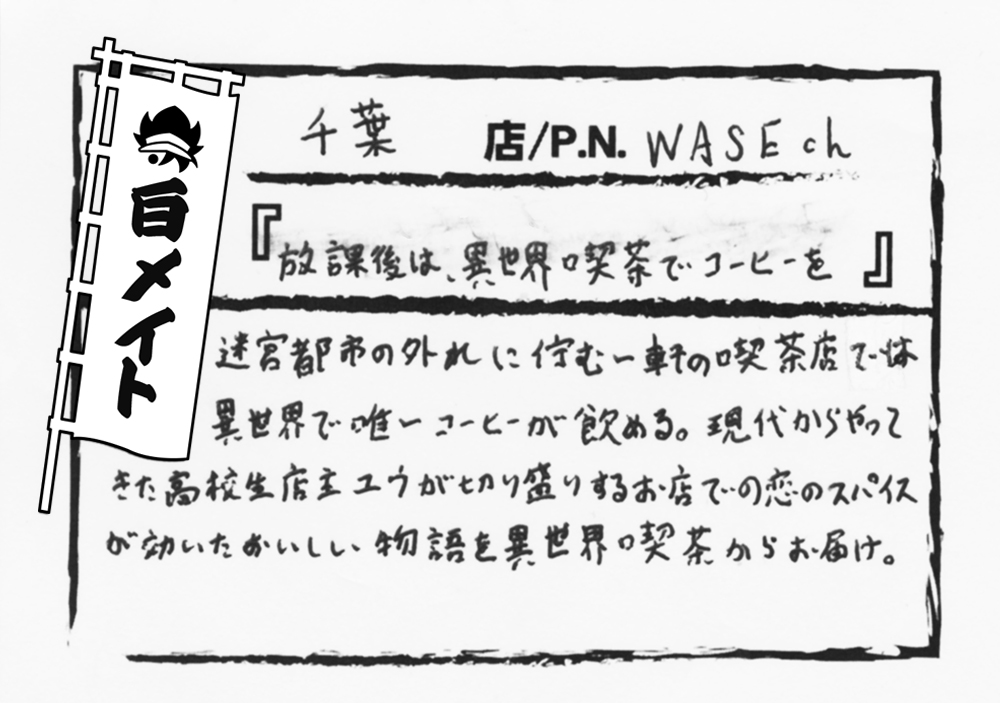 盲メイト
千葉 店/P.N. WASEch
『放課後は、異世界喫茶でコーヒーを』
迷宮都市の外れに佇む一軒の喫茶店では
異世界で唯一コーヒーが飲める。現代からやって
きた高校生店主ユウが切り盛りするお店での恋のスパイス
が効いたおいしい物語を異世界喫茶からお届け。